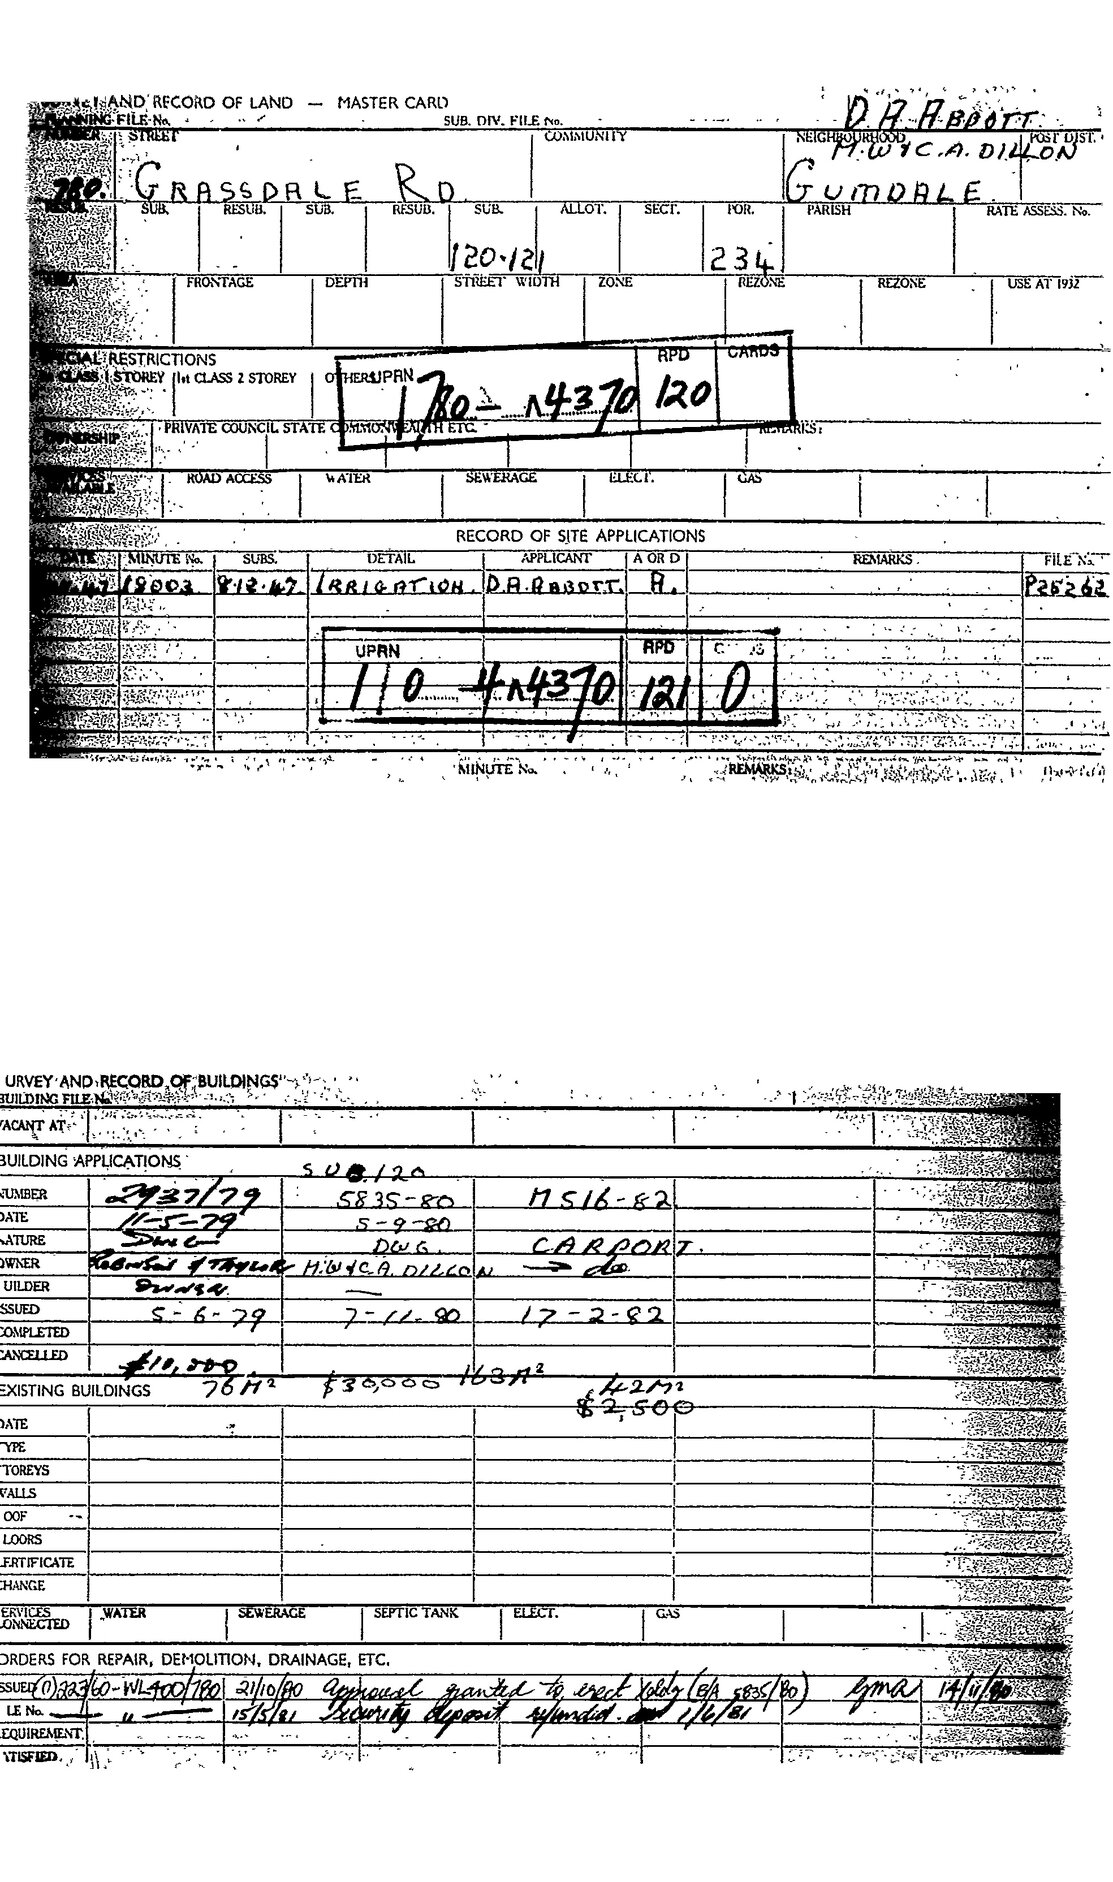 AND RECORD OF LAND — MASTER CARD
PLANNING FILE No. SUB. DIV. FILE No. D A ABBOTT
NUMBER STREET COMMUNITY NEIGHBOURHOOD POST DIST.
M.W & C.A. DILLON
780. GRASSDALE RD GUMDALE
RESUB. SUB. RESUB. SUB. RESUB. SUB. ALLOT. SECT. POR. PARISH RATE ASSESS. No.
120-121 234
AREA FRONTAGE DEPTH STREET WIDTH ZONE REZONE REZONE USE AT 1932
SPECIAL RESTRICTIONS
CLASS 1 STOREY 1st CLASS 2 STOREY OTHERS
UPRN RPD CARDS
120
OWNERSHIP PRIVATE COUNCIL STATE COMMONWEALTH ETC. REMARKS:
SERVICES AVAILABLE ROAD ACCESS WATER SEWERAGE ELECT. GAS
RECORD OF SITE APPLICATIONS
DATE MINUTE No. SUBS. DETAIL APPLICANT A OR D REMARKS FILE No.
18003 8.12.47. IRRIGATION. D.A.ABBOTT. A. P25262
UPRN RPD
4370 121 0
MINUTE No. REMARKS:
URVEY AND RECORD OF BUILDINGS
BUILDING FILE No.
VACANT AT
BUILDING APPLICATIONS SUB.120
NUMBER 2937/79 5835-80 M516-82
DATE 11-5-79 5-9-80
NATURE DWG. CARPORT.
OWNER ROBINSON & TAYLOR M.W & C.A. DILLON → do
UILDER OWNER —
ISSUED 5-6-79 7-11-80 17-2-82
COMPLETED
CANCELLED
$10,000
EXISTING BUILDINGS 76M² $30,000 163M² 42M²
$2,500
DATE
TYPE
TOREYS
WALLS
OOF
LOORS
CERTIFICATE
CHANGE
SERVICES CONNECTED WATER SEWERAGE SEPTIC TANK ELECT. GAS
ORDERS FOR REPAIR, DEMOLITION, DRAINAGE, ETC.
ISSUED 223/60-WL400/780 21/10/80 Approval granted to erect (B/A 5835/80) 14/11/80
LE No. — " — 15/5/81 Security deposit refunded. 1/6/81
EQUIREMENT
ATISFIED.